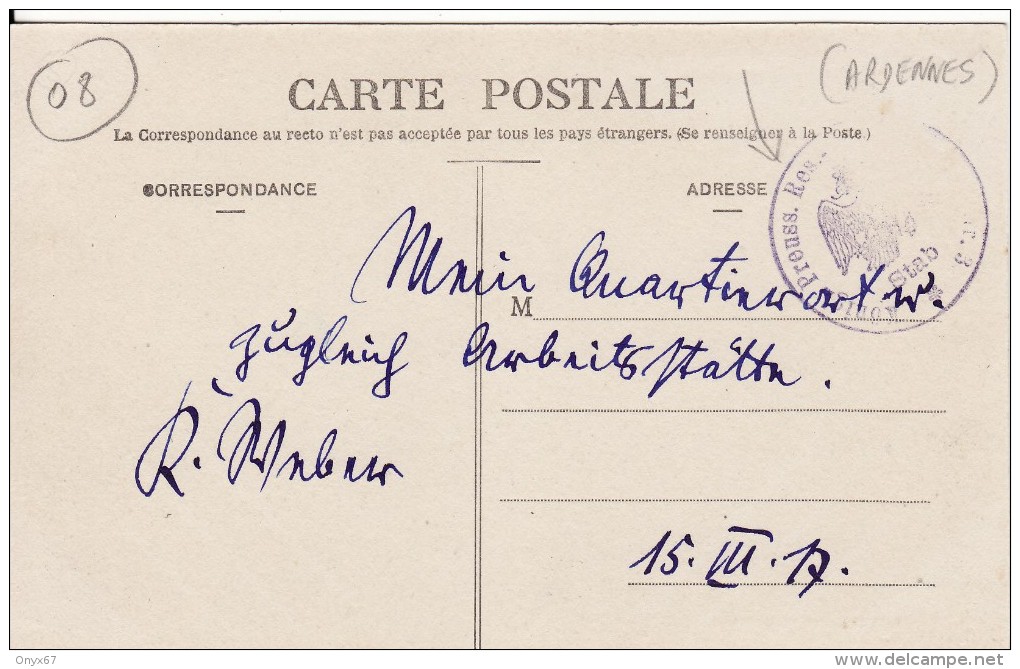 08
(ARDENNES)
CARTE POSTALE
La Correspondance au recto n'est pas acceptée par tous les pays étrangers. (Se renseigner à la Poste.)
CORRESPONDANCE
ADRESSE
Preuss. Res.-
Stab
M
Mein Quartierort u.
zugleich Arbeitsstätte.
R. Weber
15. III. 17.
Onyx67
www.delcampe.net